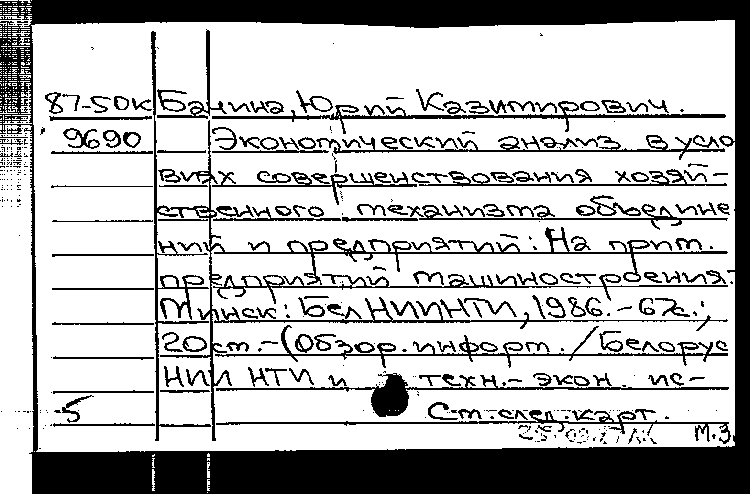 87-50к Бачина, Юрий Казимирович.
9690 Экономический анализ в усло
виях совершенствования хозяй-
ственного механизма объедине
ний и предприятий: На прим.
предприятий машиностроения.
Минск: БелНИИНТИ, 1986.-67с.;
20см.-(Обзор.информ./Белорус
НИИ НТИ и техн.-экон. ис-
5 См.след.карт.
М.З.